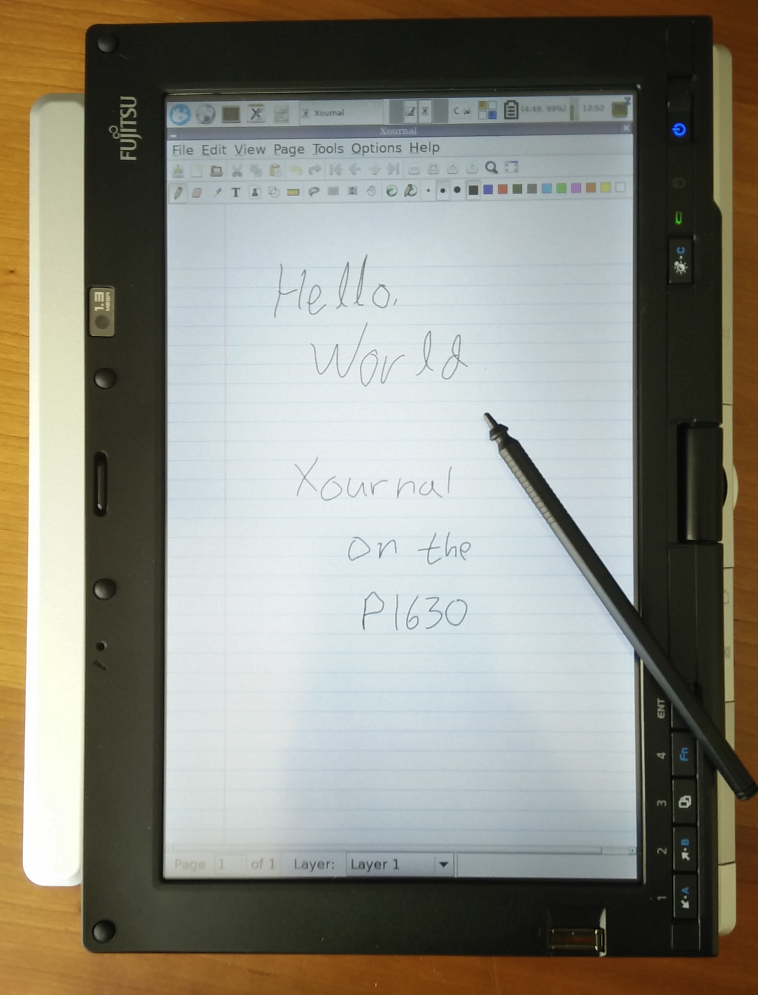 FUJITSU
1.3
Xournal
(4:49, 99%)
12:52
Xournal
File Edit View Page Tools Options Help
T
Hello,
World
Xournal
on the
P1630
Page 1 of 1 Layer: Layer 1
C
ENT
Fn
4
3
2
B
1
A